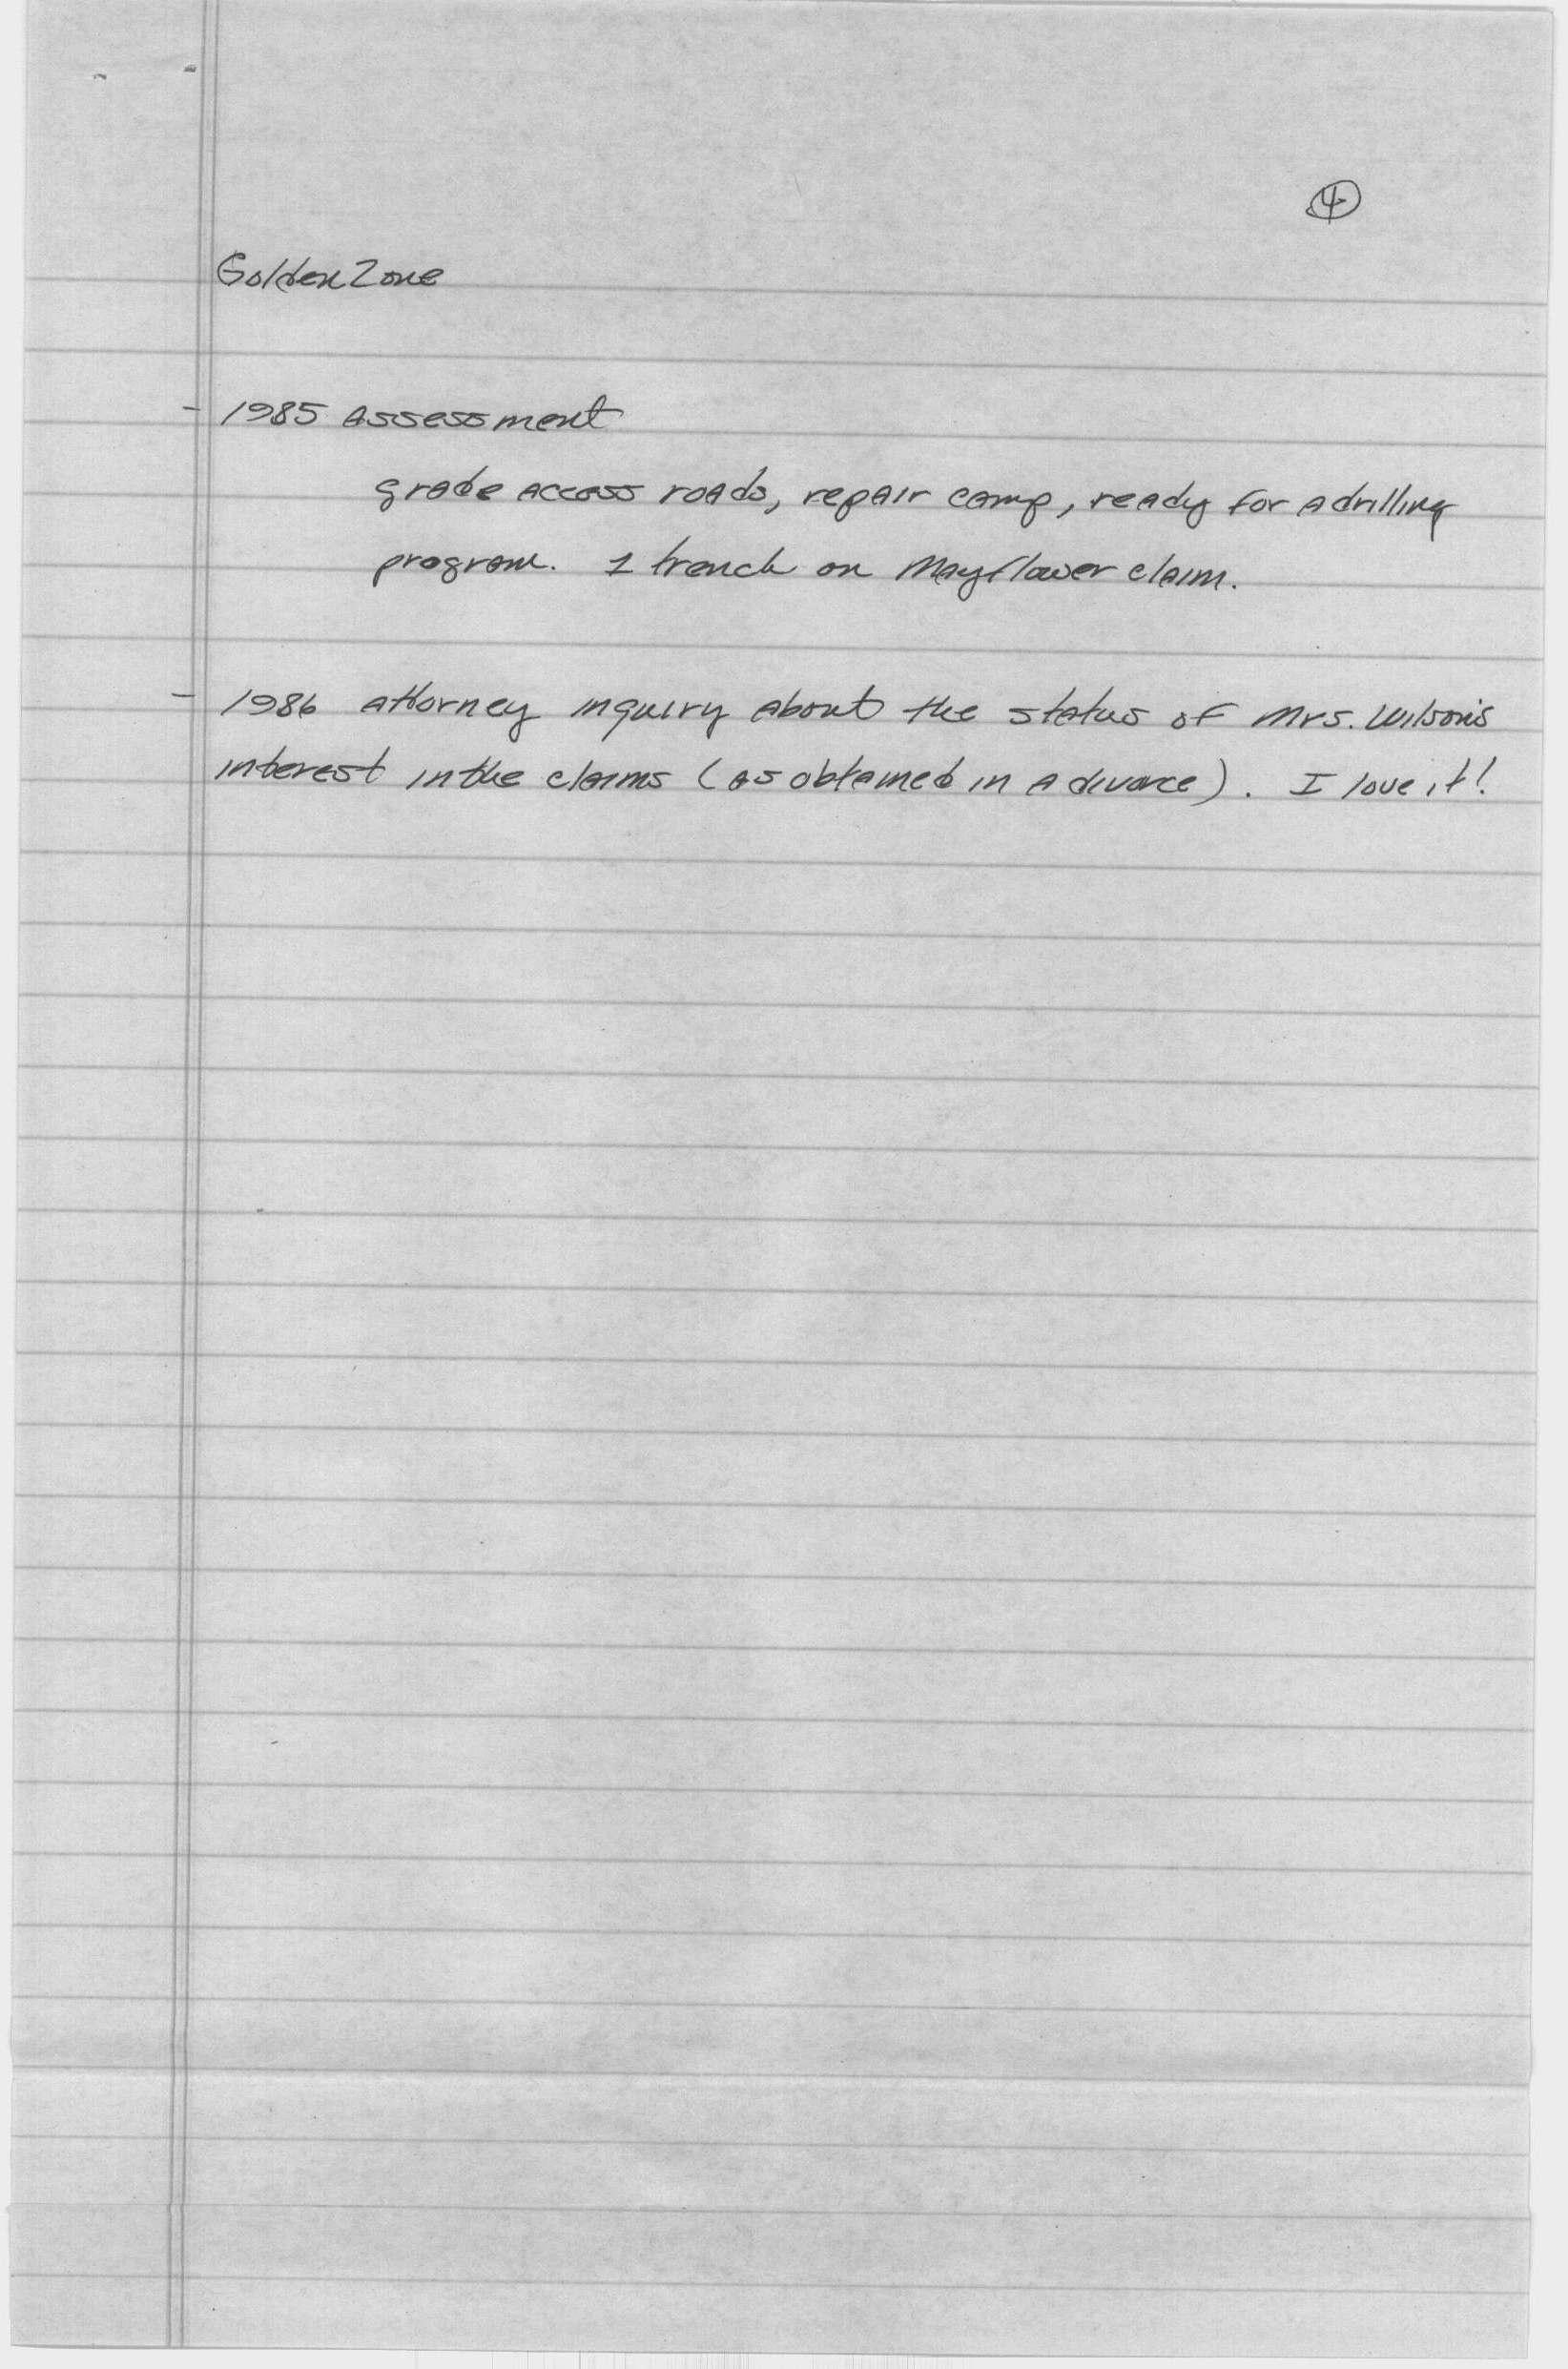 4
Golden Zone
- 1985 Assessment
grade access roads, repair camp, ready for a drilling
program. 1 trench on Mayflower claim.
- 1986 attorney inquiry about the status of Mrs. Wilson's
interest in the claims (as obtained in a divorce). I love it!